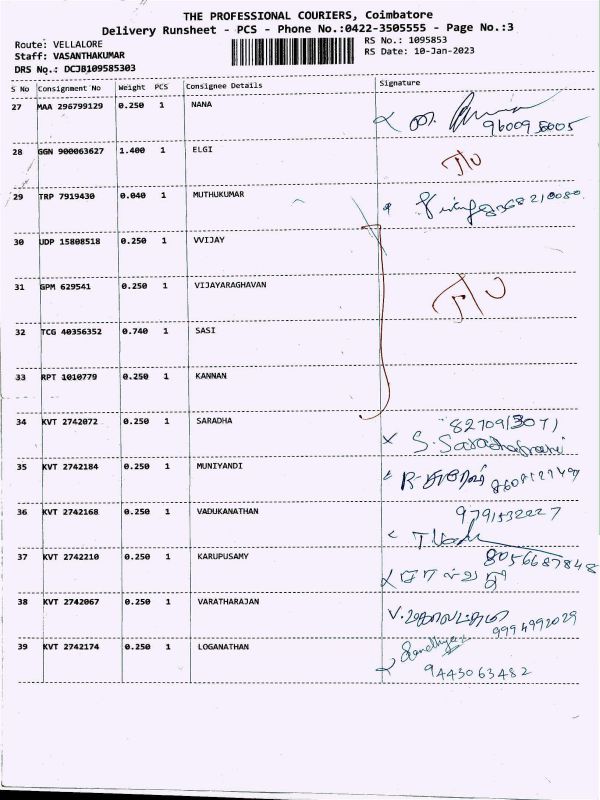 THE PROFESSIONAL COURIERS, Coimbatore
Delivery Runsheet - PCS - Phone No.:0422-3505555 - Page No.:3
Route: VELLALORE
RS No.: 1095853
Staff: VASANTHAKUMAR
RS Date: 10-Jan-2023
DRS No.: DCJB109585303
S No Consignment No Weight PCS Consignee Details Signature
27 MAA 296799129 0.250 1 NANA
28 GGN 900063627 1.400 1 ELGI
29 TRP 7919430 0.040 1 MUTHUKUMAR
30 UDP 15808518 0.250 1 VVIJAY
31 GPM 629541 0.250 1 VIJAYARAGHAVAN
32 TCG 40356352 0.740 1 SASI
33 RPT 1010779 0.250 1 KANNAN
34 KVT 2742072 0.250 1 SARADHA
35 KVT 2742184 0.250 1 MUNIYANDI
36 KVT 2742168 0.250 1 VADUKANATHAN
37 KVT 2742210 0.250 1 KARUPUSAMY
8056687848
38 KVT 2742067 0.250 1 VARATHARAJAN
9994992029
39 KVT 2742174 0.250 1 LOGANATHAN
9443063482